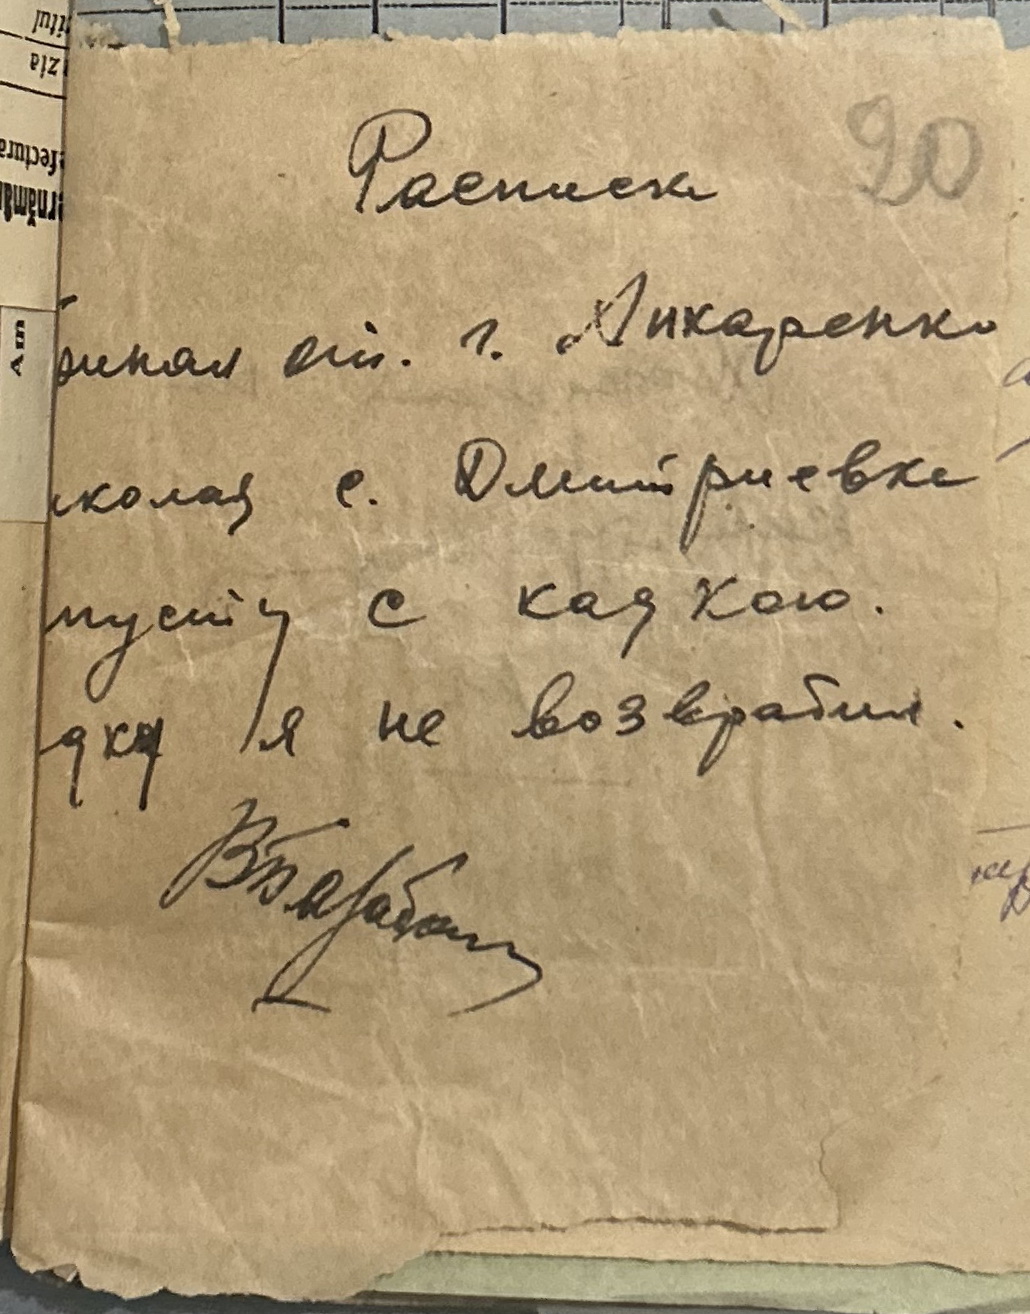 Расписка
20
ринял от. г. Лихаренко
иколая с. Дмитриевке
пусту с кадкою.
дку я не возвратил.
ВБарабан